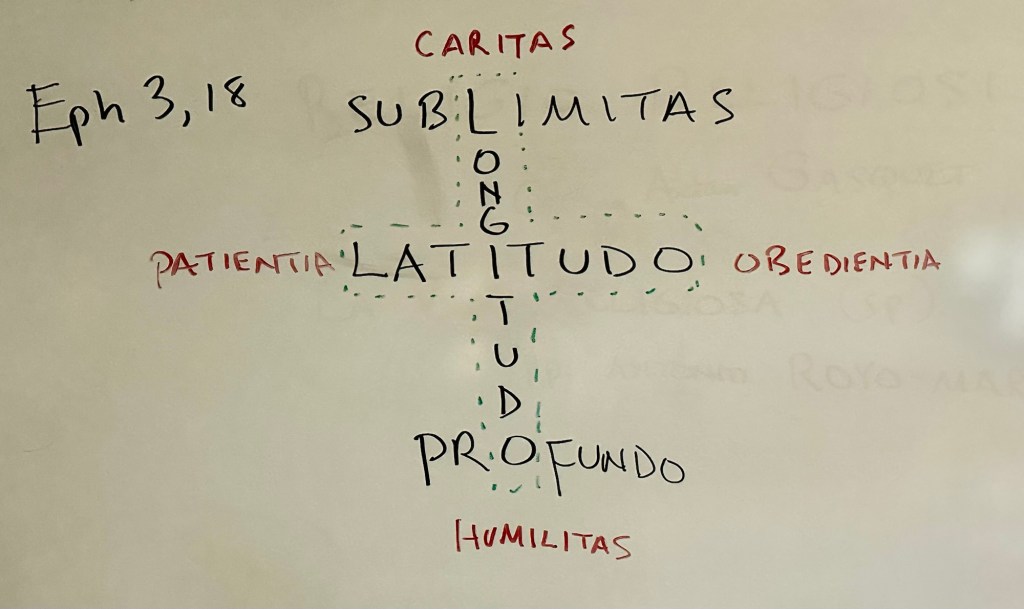 CARITAS
Eph 3,18
SUBLIMITAS
LONGITUDO
PATIENTIA LATITUDO OBEDIENTIA
PROFUNDO
HUMILITAS